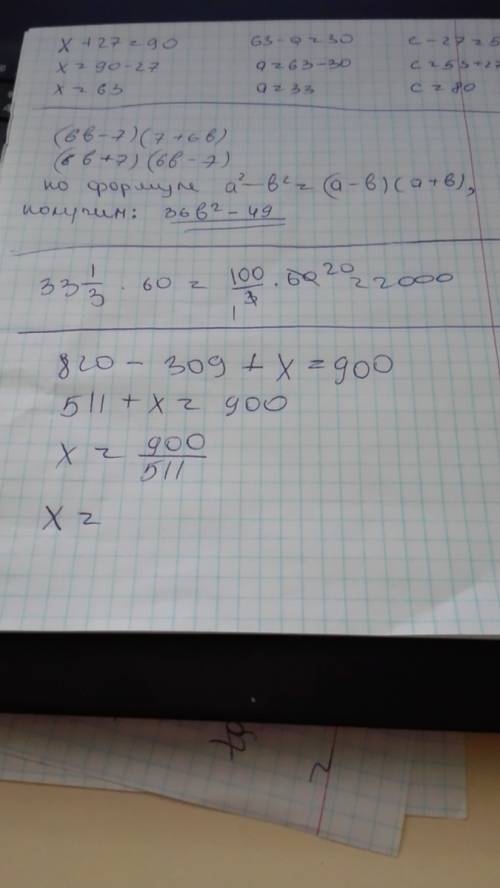 x + 27 = 90
x = 90 - 27
x = 63
63 - a = 30
a = 63 - 30
a = 33
c - 27 = 5
c = 53 + 27
c = 80
(6в - 7)(7 + 6в)
(6в + 7)(6в - 7)
по формуле a² - в² = (a - в)(a + в),
получим: 36в² - 49
33 1/3 · 60 = 100/3 1 · 60 20 = 2000
820 - 309 + x = 900
511 + x = 900
x = 900/511
x =